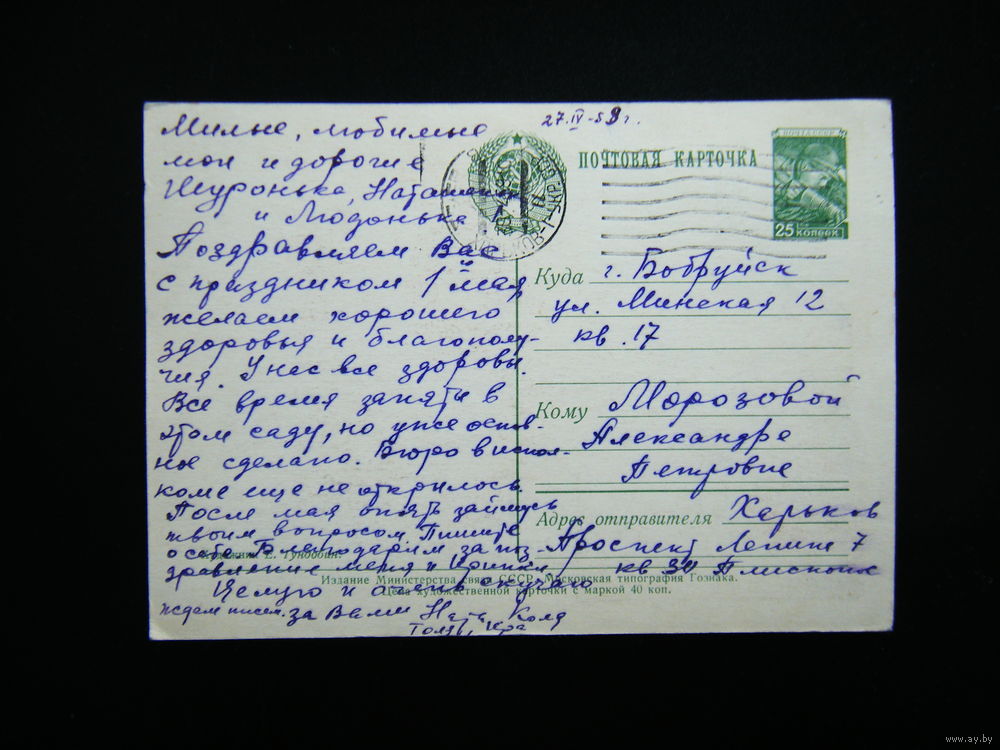 27.IV-59 г.
Милые, любимые
мои и дорогие
Шуронька, Наташенька
и Людонька
Поздравляем Вас
с праздником 1й мая,
желаем хорошего
здоровья и благополу-
чия. У нас все здоровы.
Все время заняты в
этом саду, но уже основ-
ное сделано. Бюро в испол-
коме еще не открылось.
После мая опять займусь
твоим вопросом. Пишите
о себе. Благодарим за поз-
дравление меня и
Целую и очень скучаю
ждем писем. за Вами Ната, Коля
Толя,
ПОЧТОВАЯ КАРТОЧКА
ПОЧТА СССР
25 КОПЕЕК
Куда г. Бобруйск
ул. Минская 12
кв. 17
Кому Морозовой
Александре
Петровне
Адрес отправителя Харьков
Проспект Ленина 7
кв 34
Е. Гундобин.
Издание Министерства связи СССР. Московская типография Гознака.
Цена художественной карточки с маркой 40 коп.
www.ay.by